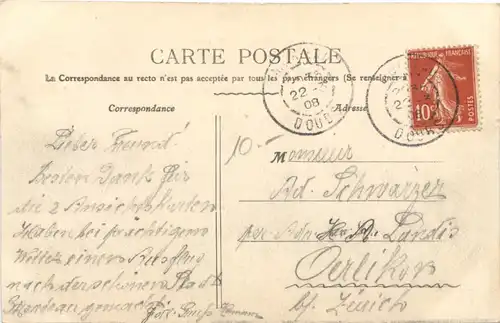 CARTE POSTALE
La Correspondance au recto n'est pas acceptée par tous les pays étrangers (Se renseigner à
Correspondance
Adresse
RÉPUBLIQUE FRANÇAISE
10c
POSTES
22
08
DOUBS
22
DOUBS
10-
Lieber Freund!
Besten Dank für
die 2 Ansichtskarten
Haben bei prächtigem
Wetter einen Ausflug
nach der schönen Stadt
gemacht
Monsieur
Ad. Schwarzer
per Adr. Landis
Oerlikon
bf. Zürich